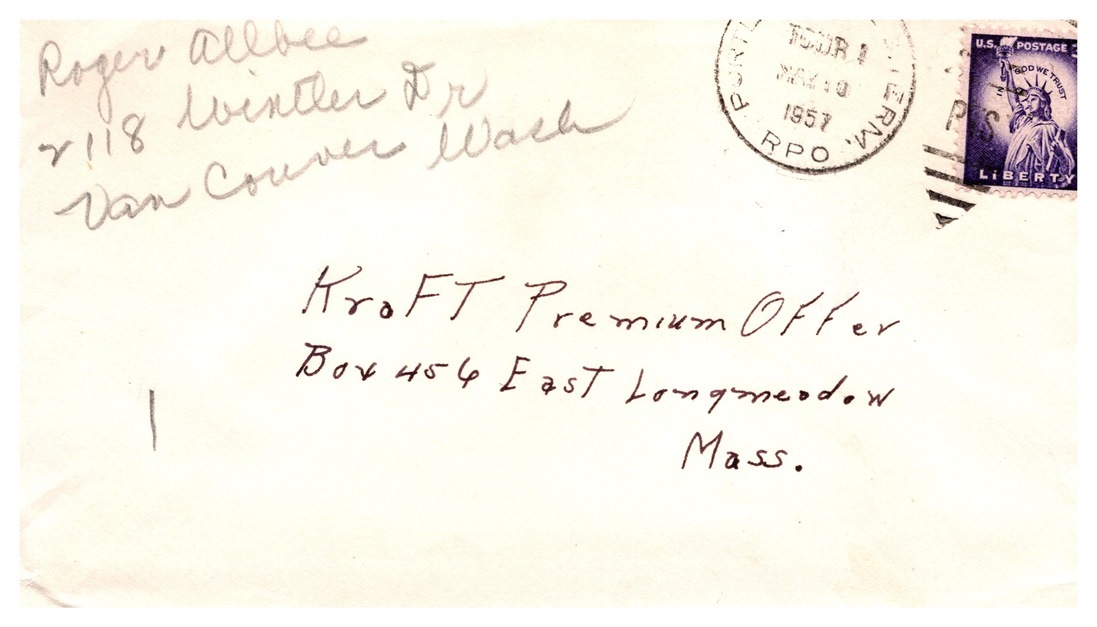 Roger Allbee
2118 Wintler Dr
Van Couver Wash
TOUR 1
1957
RPO
TERM.
U.S. POSTAGE
IN GOD WE TRUST
LIBERTY
KraFT Premium OFFer
Box 456 East Longmeadow
Mass.